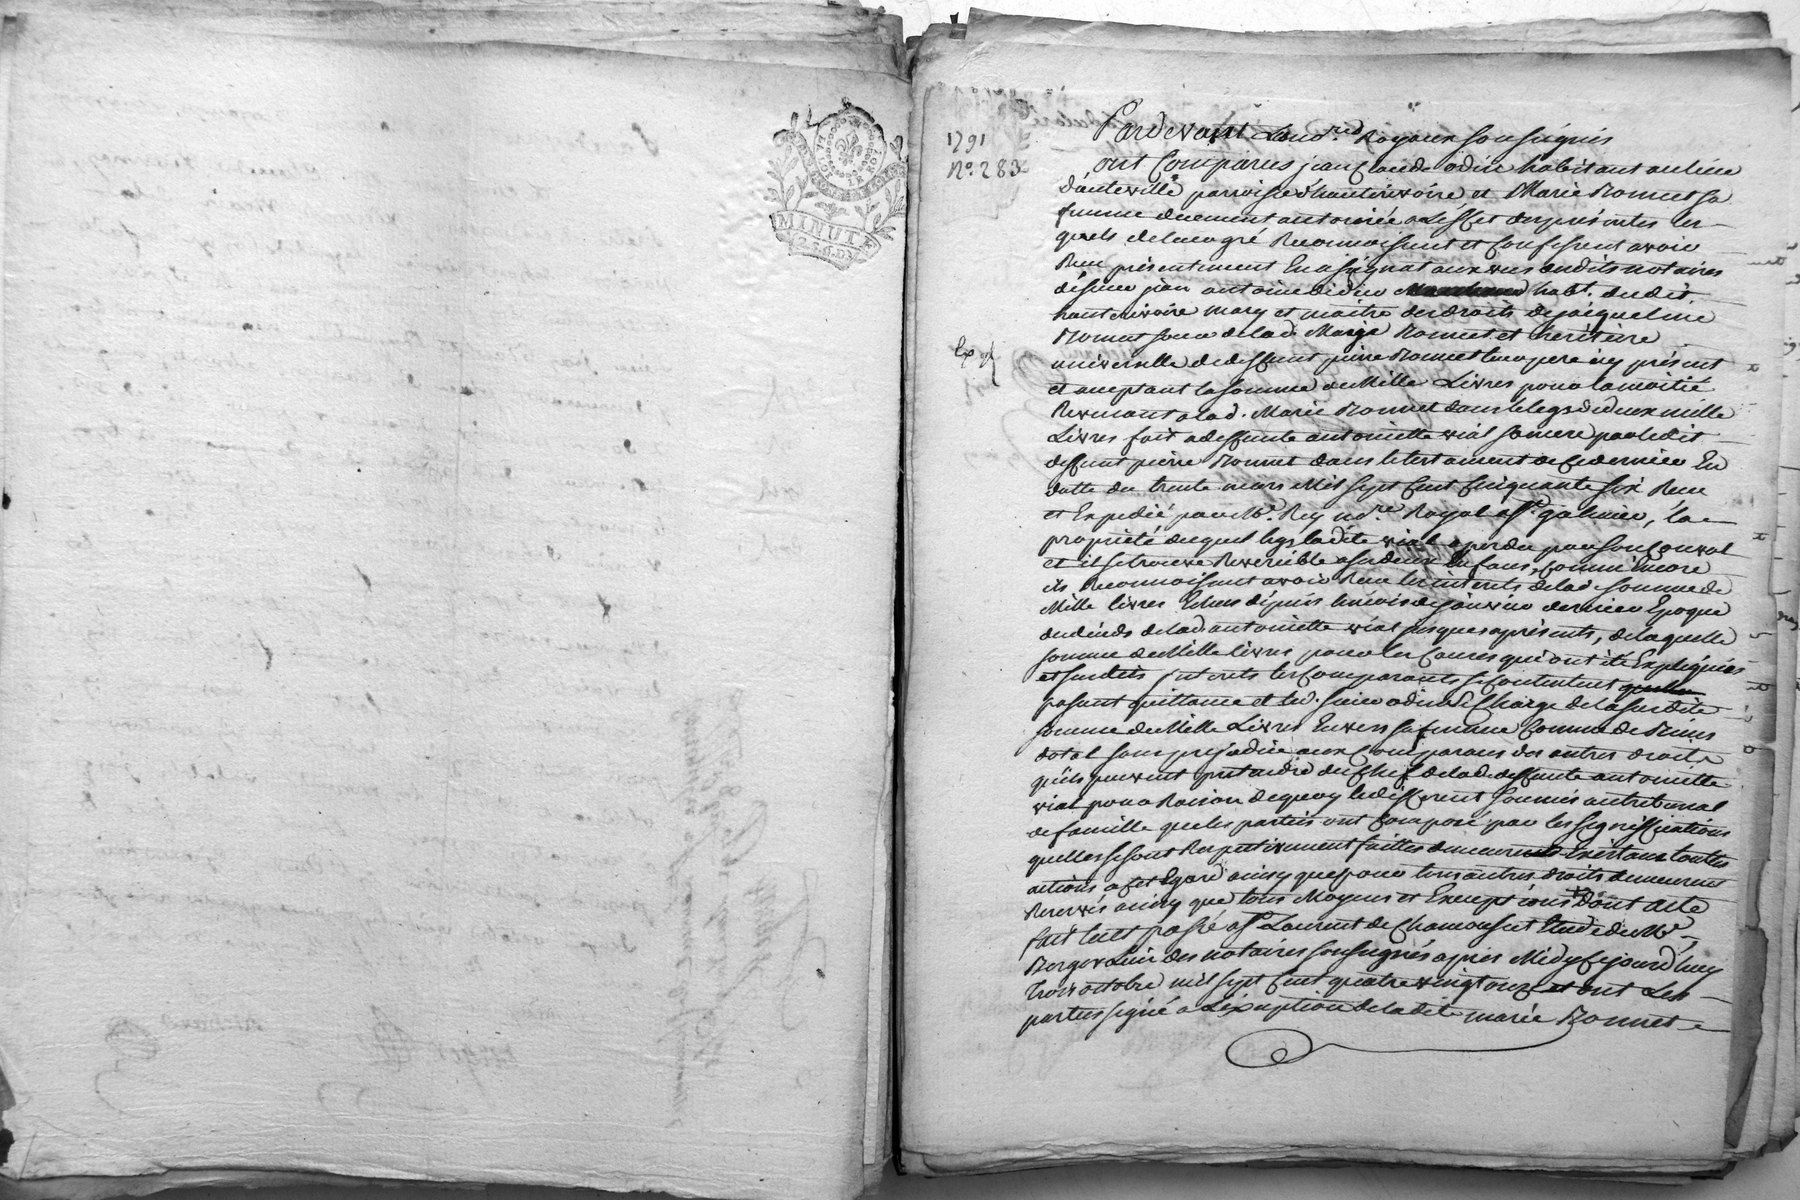 LA LOI
LE ROI
MINUTE
2 S. 6 D.
1791
N° 283
Pardevant Les nores Royaux soussignés
ont Comparus jean Claude odin habitant au lieu
d'auteville parroisse d'hauterivoire et Marie Bonnet sa
femme duement autorisée a L'éffet des présentes les-
quels de leur gré Reconnoissent et Confessent avoir
Reçu présentement En assignat aux vues desdits notaires
de sieur jean antoine habt. dudit
haut rivoire mary et maitre des droits de jacqueline
Bonnet soeur de lad. Marie Bonnet et héritière
Exp
universelle de deffunt pierre Bonnet leur pere icy présent
et acceptant la somme de Mille Livres pour la moitié
Revenant a lad. Marie Bonnet dans le legs de deux mille
Livres fait a deffunte antoinette vial sa mere par ledit
deffunt pierre Bonnet dans le testament de ce dernier En
datte du trente mars Mil sept Cent Cinquante six Reçu
et Expedié par Me. Rey nore Royal a St. galmier, la
propriété duquel legs ladite vial a perdu par son Convol
et il se trouve Reversible a ses deux Enfans, Comme Encore
ils Reconnoissent avoir Reçu les interets de lad. somme de
Mille livres Echus depuis le mois de janvier dernier Epoque
du déceds de lad. antoinette vial jusques a présents, de laquelle
somme de Mille livres pour les Causes qui ont été Expliquées
et susdits interets les Comparants se Contentent
passent quittance et led. sieur odin se Charge de la susdite
somme de Mille Livres Envers sa femme Comme de Biens
dotal sans prejudice aux Comparans des autres droits
qu'ils peuvent prétendre du Chef de lad. deffunte antoinette
vial pour Raison de quoy le different soumis au tribunal
de famille que les parties ont Composé par les significations
quelles se sont Respectivement faittes demeurent Existans toutes
actions a Cet Egard ainsy que pour tous autres droits demeurent
Reservés ainsy que tous Moyens et Exceptions Dont acte
fait Lu et passé a St Laurent de Chamousset Etude de Me
Bergor L'un des notaires soussignés apres Midy Cejourd'huy
trois octobre mil sept Cent quatre vingt onze et ont Les
parties signé a L'exception de ladite marie Bonnet